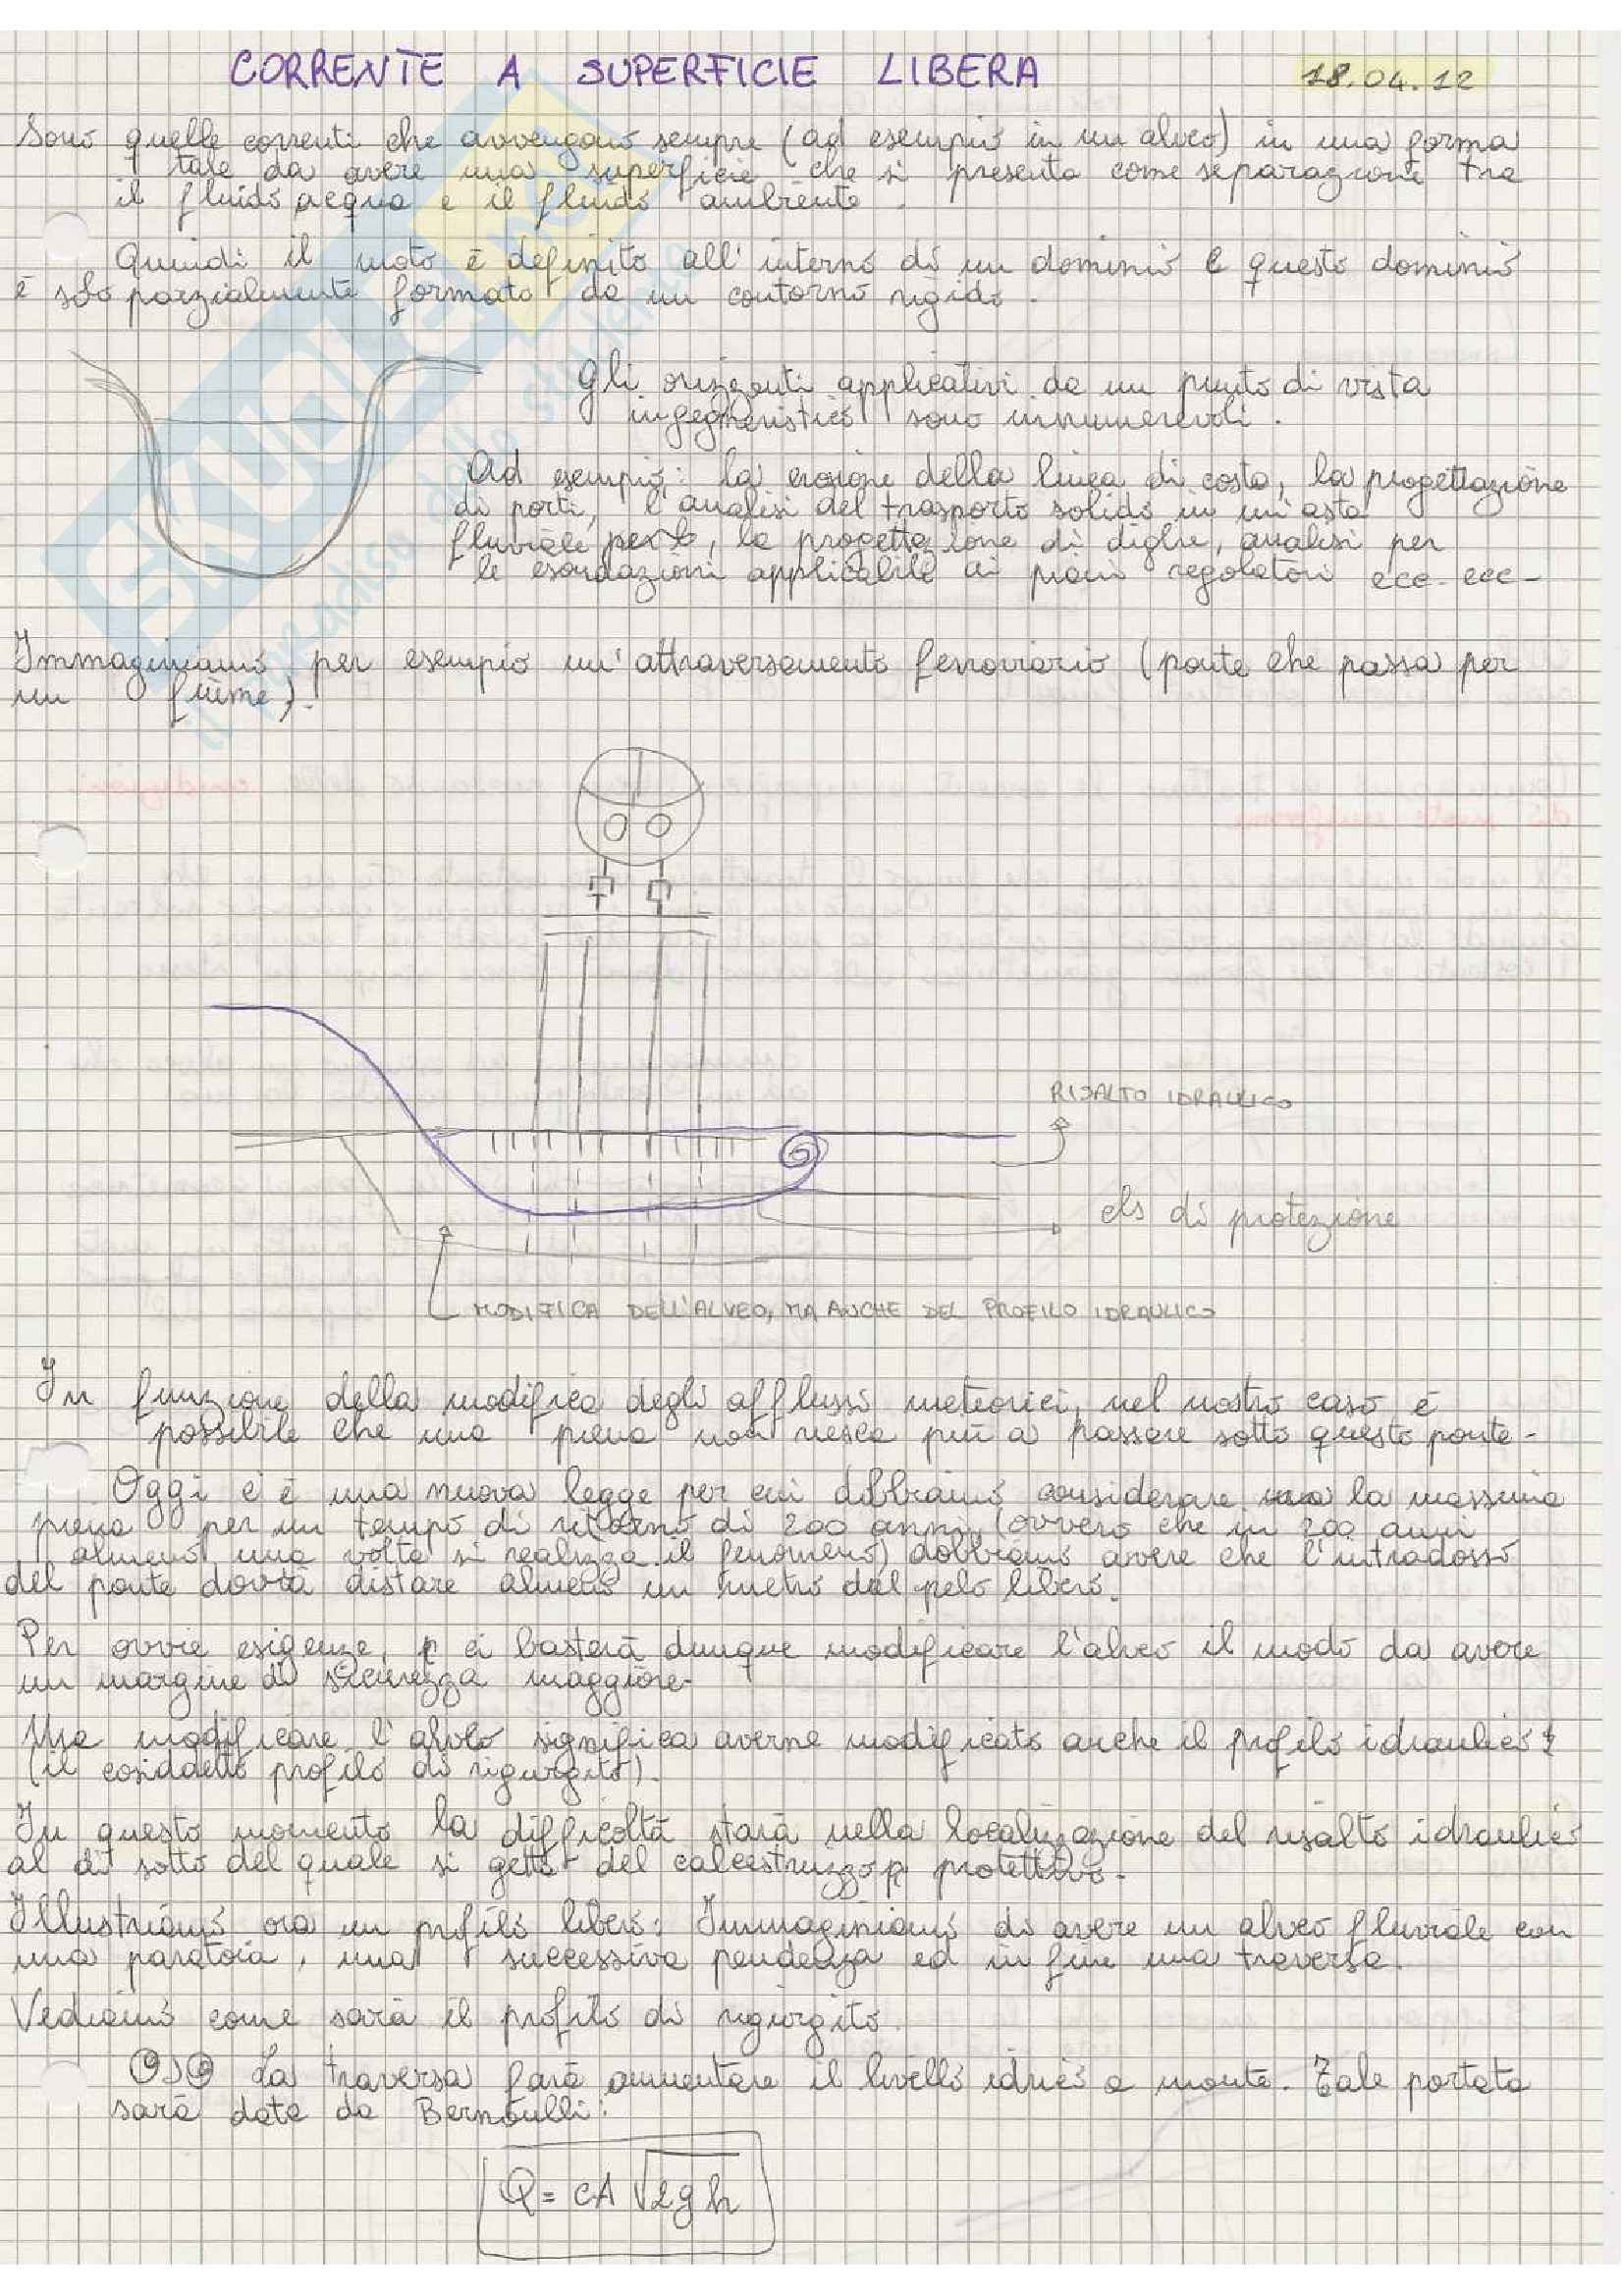 CORRENTE A SUPERFICIE LIBERA 18.04.12
Sono quelle correnti che avvengono sempre (ad esempio in un alveo) in una forma
tale da avere una superficie che si presenta come separazione tra
il fluido acqua e il fluido ambiente.
Quindi il moto è definito all'interno di un dominio e questo dominio
è solo parzialmente formato da un contorno rigido.
Gli orizzonti applicativi da un punto di vista
ingegneristico sono innumerevoli.
Ad esempio: la erosione della linea di costa, la progettazione
di porti, l'analisi del trasporto solido in un'asta
fluviale, la progettazione di dighe, analisi per
le esondazioni applicabile ai piani regolatori ecc. ecc.
Immaginiamo per esempio un'attraversamento ferroviario (ponte che passa per
un fiume).
RISALTO IDRAULICO
cls di protezione
MODIFICA DELL'ALVEO, MA ANCHE DEL PROFILO IDRAULICO
In funzione della modifica degli afflussi meteorici, nel nostro caso è
possibile che una piena non riesca più a passare sotto questo ponte.
Oggi c'è una nuova legge per cui dobbiamo considerare la massima
piena per un tempo di ritorno di 200 anni (ovvero che in 200 anni
almeno una volta si realizza il fenomeno) dobbiamo avere che l'intradosso
del ponte dovrà distare almeno un metro dal pelo libero.
Per ovvie esigenze, ci basterà dunque modificare l'alveo il modo da avere
un margine di sicurezza maggiore.
Ma modificare l'alveo significa averne modificato anche il profilo idraulico
(il cosiddetto profilo di rigurgito).
In questo momento la difficoltà starà nella localizzazione del risalto idraulico
al di sotto del quale si getta del calcestruzzo protettivo.
Illustriamo ora un profilo libero: Immaginiamo di avere un alveo fluviale con
una paratoia, una successiva pendenza ed in fine una traversa.
Vediamo come sarà il profilo di rigurgito.
La traversa farà aumentare il livello idrico a monte. Tale portata
sarà data da Bernoulli:
Q = cA √2gh